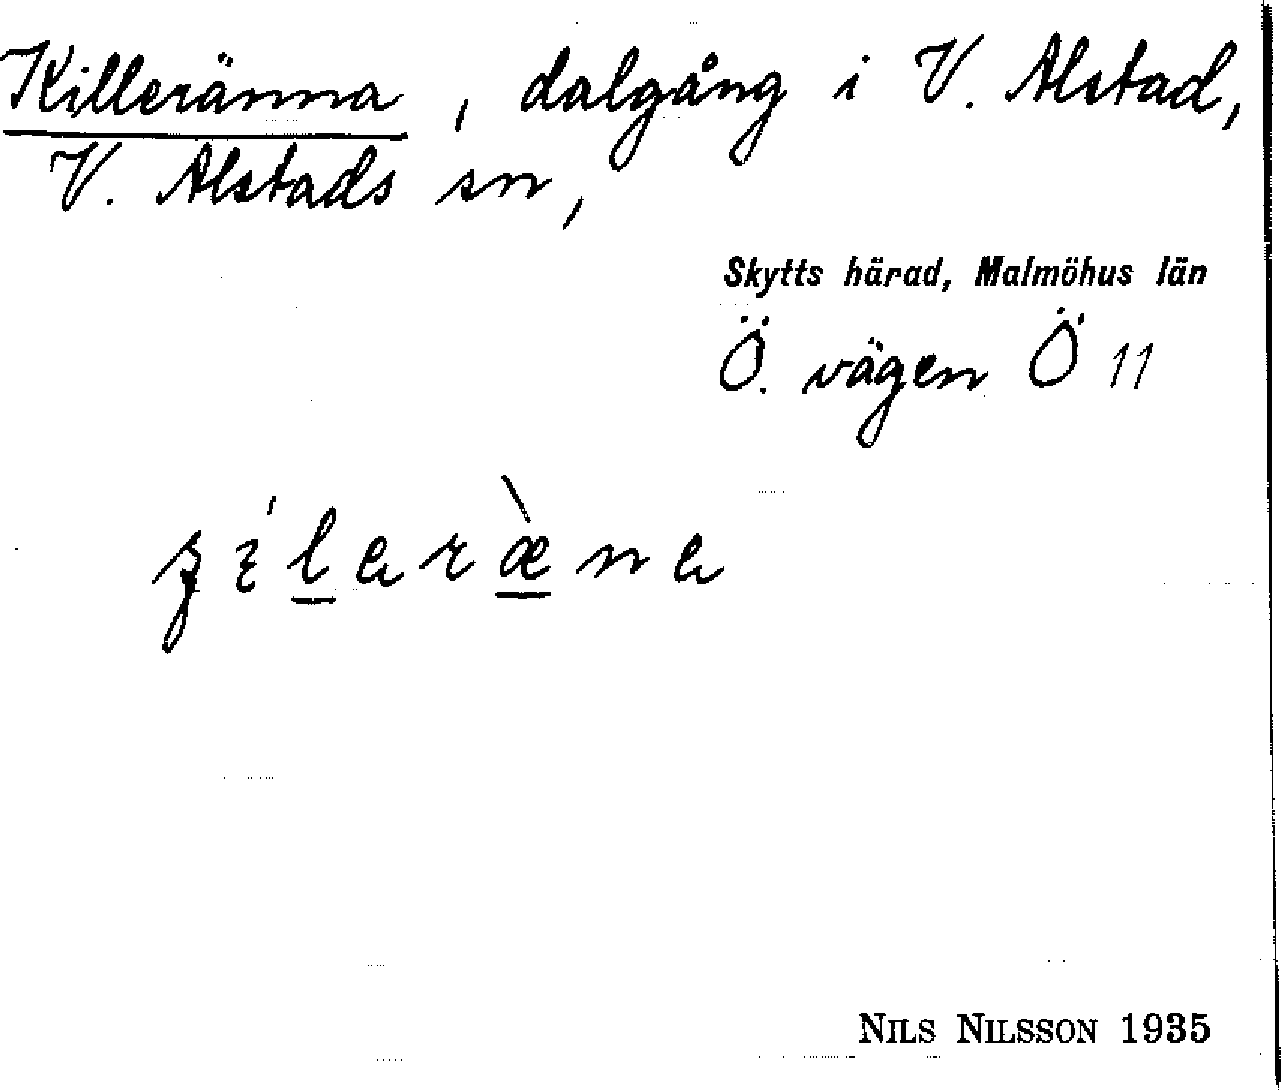 Killeränna, dalgång i V. Alstad,
V. Alstads sn,
Skytts härad, Malmöhus län
Ö. vägen Ö 11
NILS NILSSON 1935